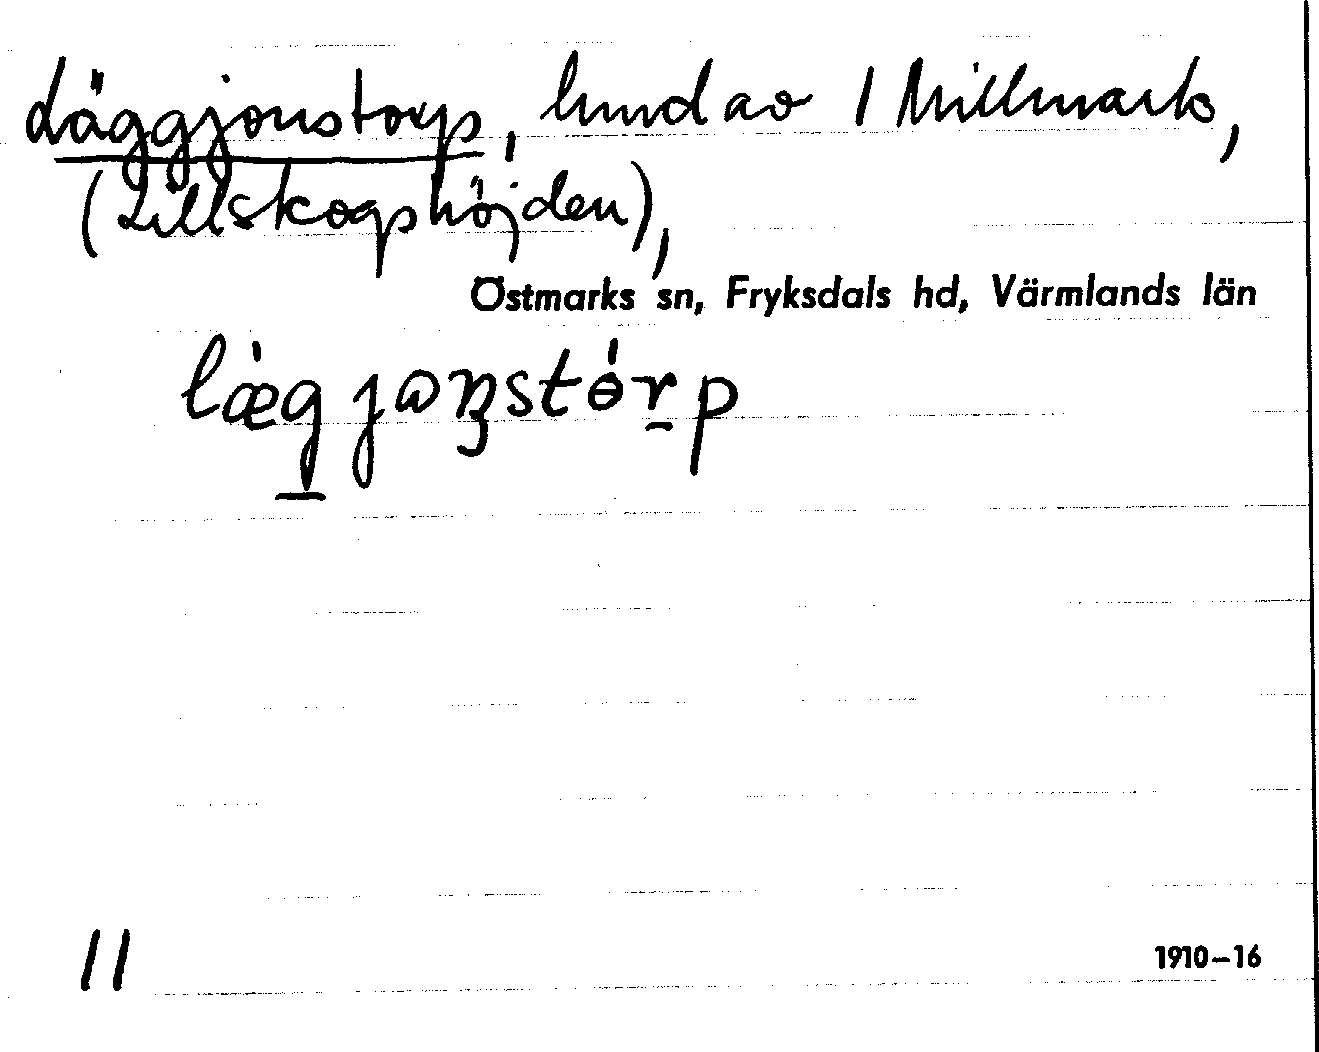 Läggjonstorp, hmd av 1 Millmark,
(Lillskogshöjden),
Östmarks sn, Fryksdals hd, Värmlands län
lǽg jɷnstɵ́rp
11
1910–16